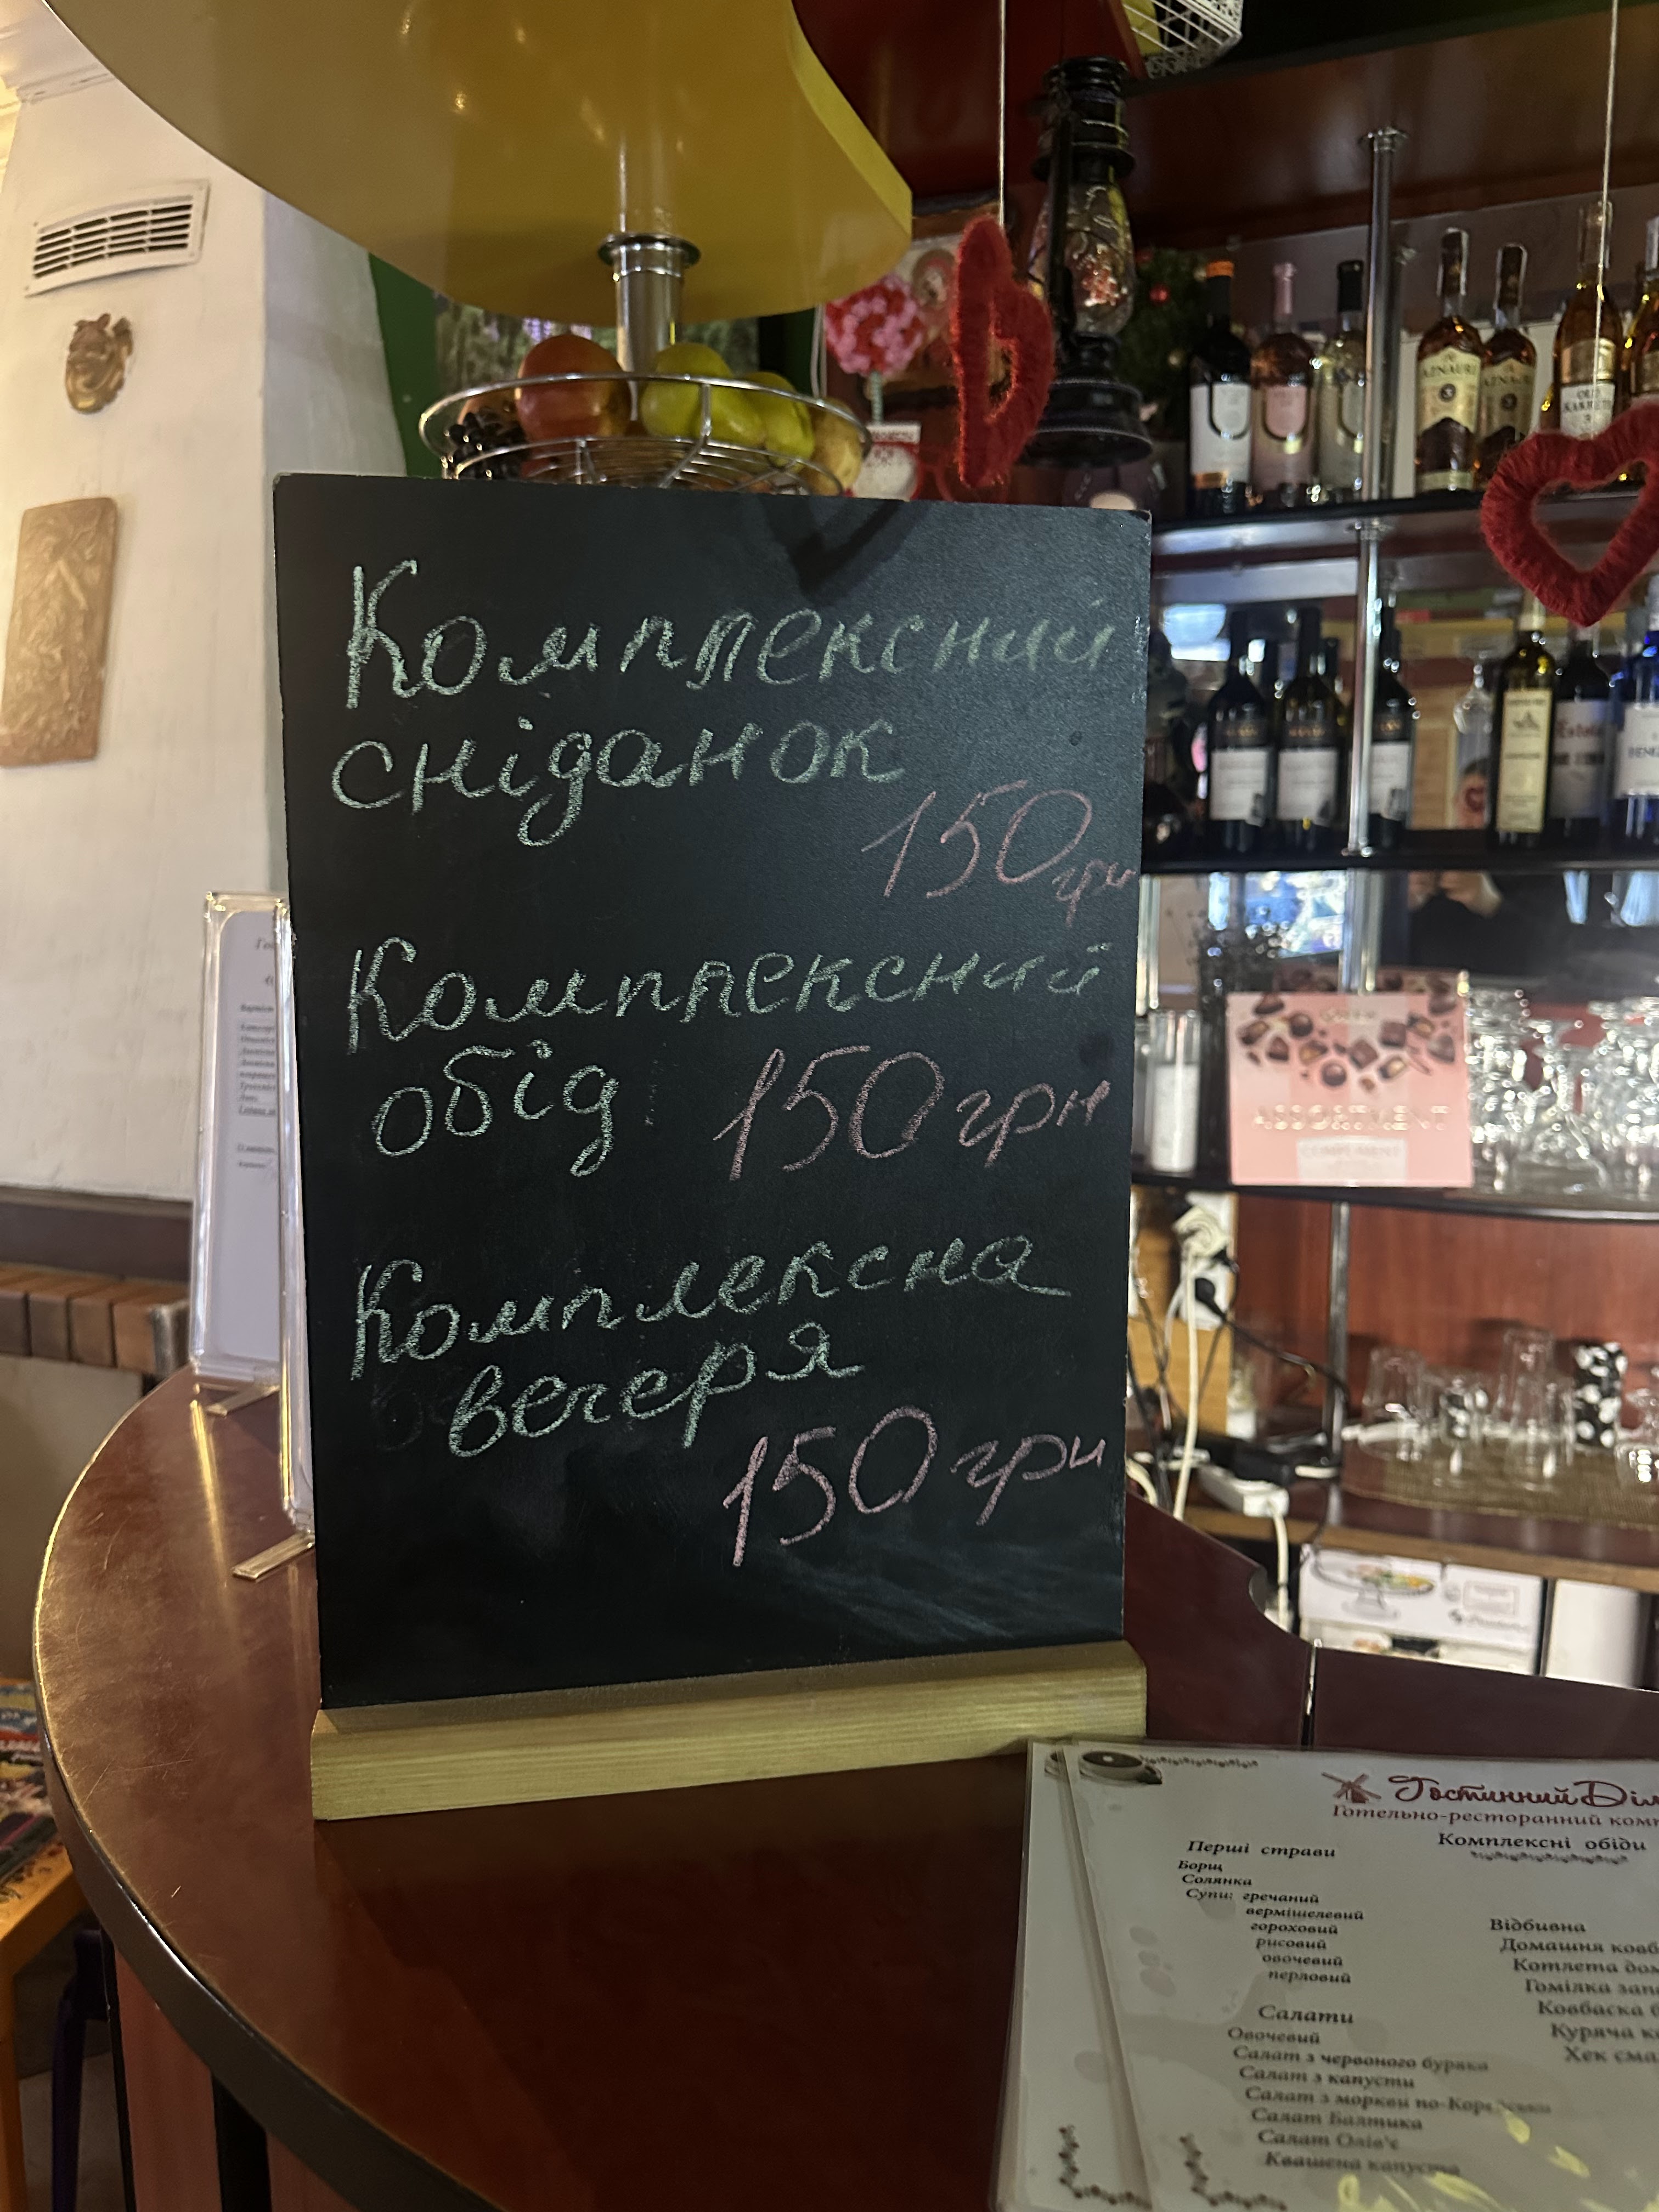 Комплексний
сніданок
150грн
Комплексний
обід 150грн
Комплексна
вечеря
150грн
Гостинний
Готельно-ресторанний
Комплексні обіди
Перші страви
Борщ
Солянка
Супи: гречаний
вермішелевий
гороховий
рисовий
овочевий
перловий
Салати
Овочевий
Салат з червоного буряка
Салат з капусти
Салат з моркви по-Корейськи
Салат Балтика
Салат Олів'є
Квашена капуста
Відбивна
Домашня
Котлета
Гомілка
Ковбаска
Куряча
Хек
AZNAURI
AZNAURI
OLD
KAKHETI
ASSORTMENT
COMPLIMENT